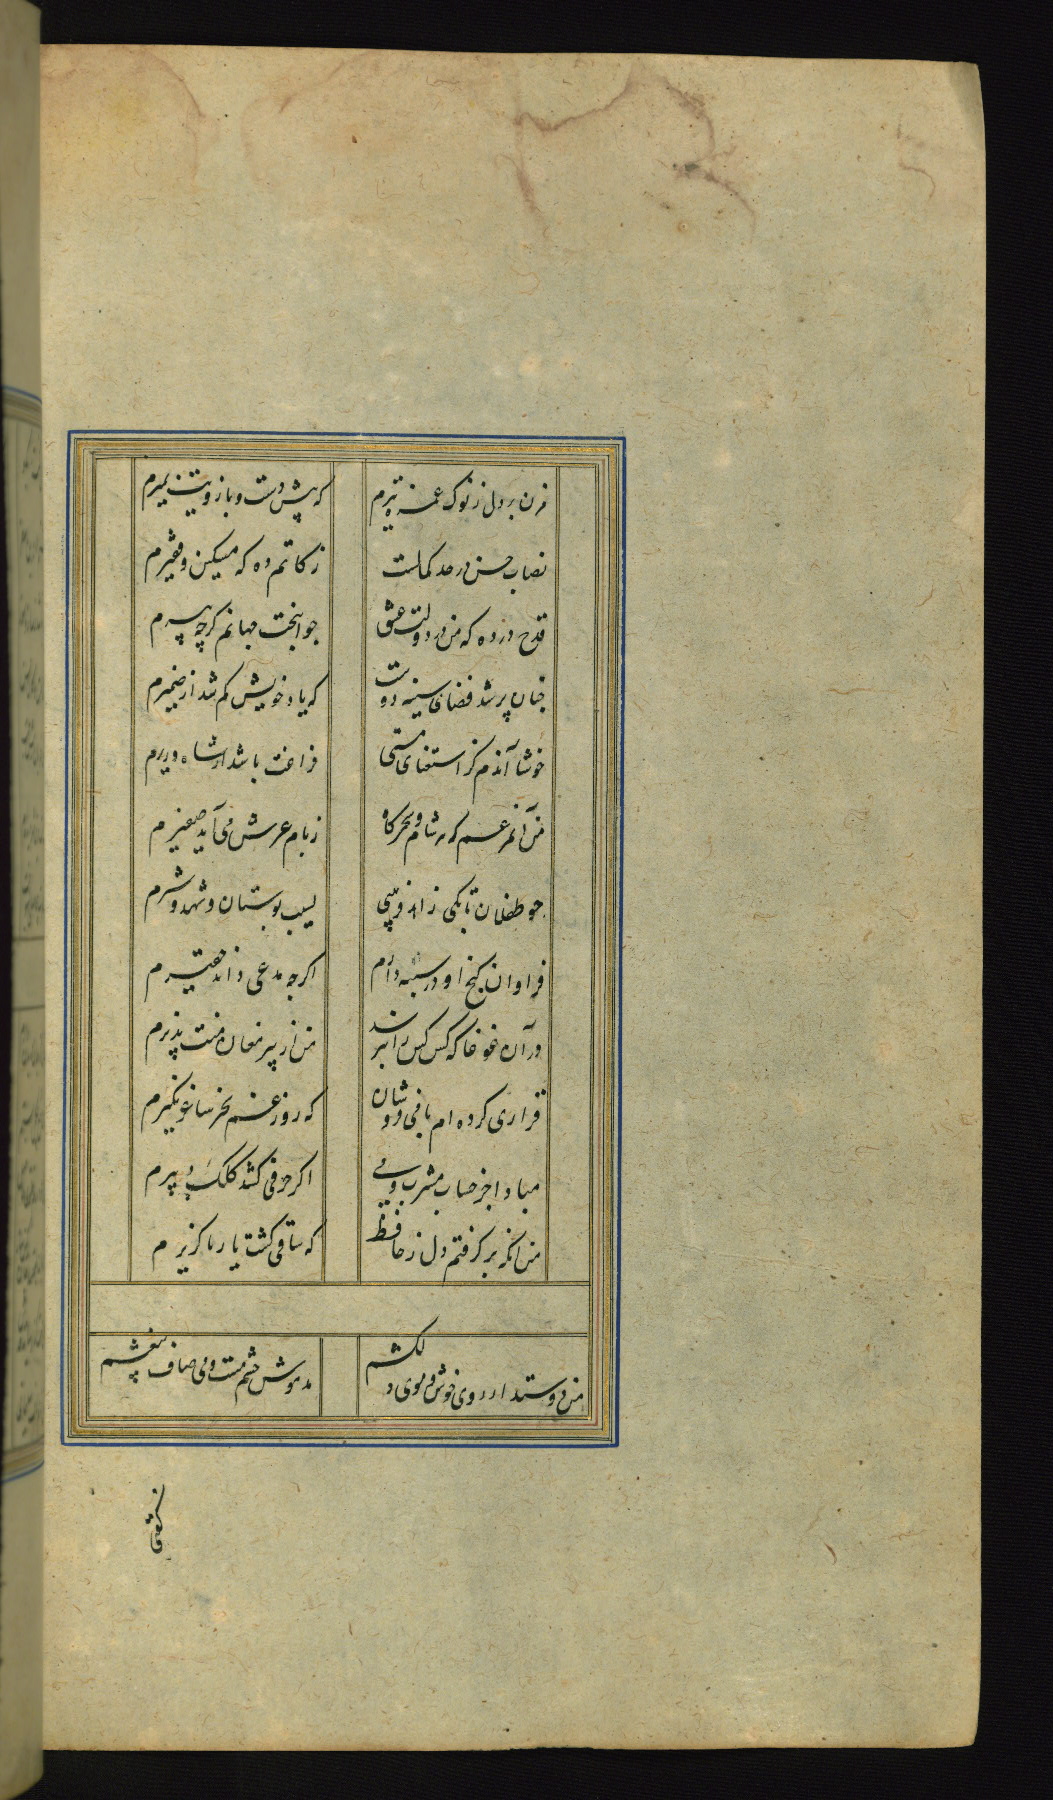 مزن بر دل ز نوک غمزه تیرم که پیش دست و بازویت بمیرم
نصاب حسن در حد کمالست زکاتم ده که مسکین و فقیرم
قدح در ده که من در دولت عشق جوانبخت جهانم کرچه پیرم
چنان پر شد فضای سینه دوست که یاد خویش کم شد از ضمیرم
خوشا آندم کز استغنای مستی فراغت باشد از شاه و وزیرم
من آن مرغم که هر شام و سحرکاه ز بام عرش می آید صفیرم
چو طفلان تا بکی زاهد فریبی بسیب بوستان و شهد و شیرم
فراوان کنج او در سینه دارم اکرچه مدعی داند حقیرم
در آن غوغا که کس کس را نپرسد من از پیر مغان منت پذیرم
قراری کرده ام با می فروشان که روز غم بجز ساغر نکیرم
مبادا جز حساب مطرب و می اکر حرفی کشد کلک دبیرم
من انکه بر کرفتم دل ز حافظ که ساقی کشت یار ناکزیرم
من دوستدار روی خوش و موی دلکشم مدهوش چشم مست و می صاف بیغشم